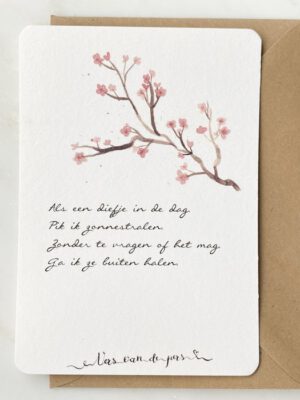 Als een diefje in de dag.
Pik ik zonnestralen.
Zonder te vragen of het mag.
Ga ik ze buiten halen.
Vers van de pers